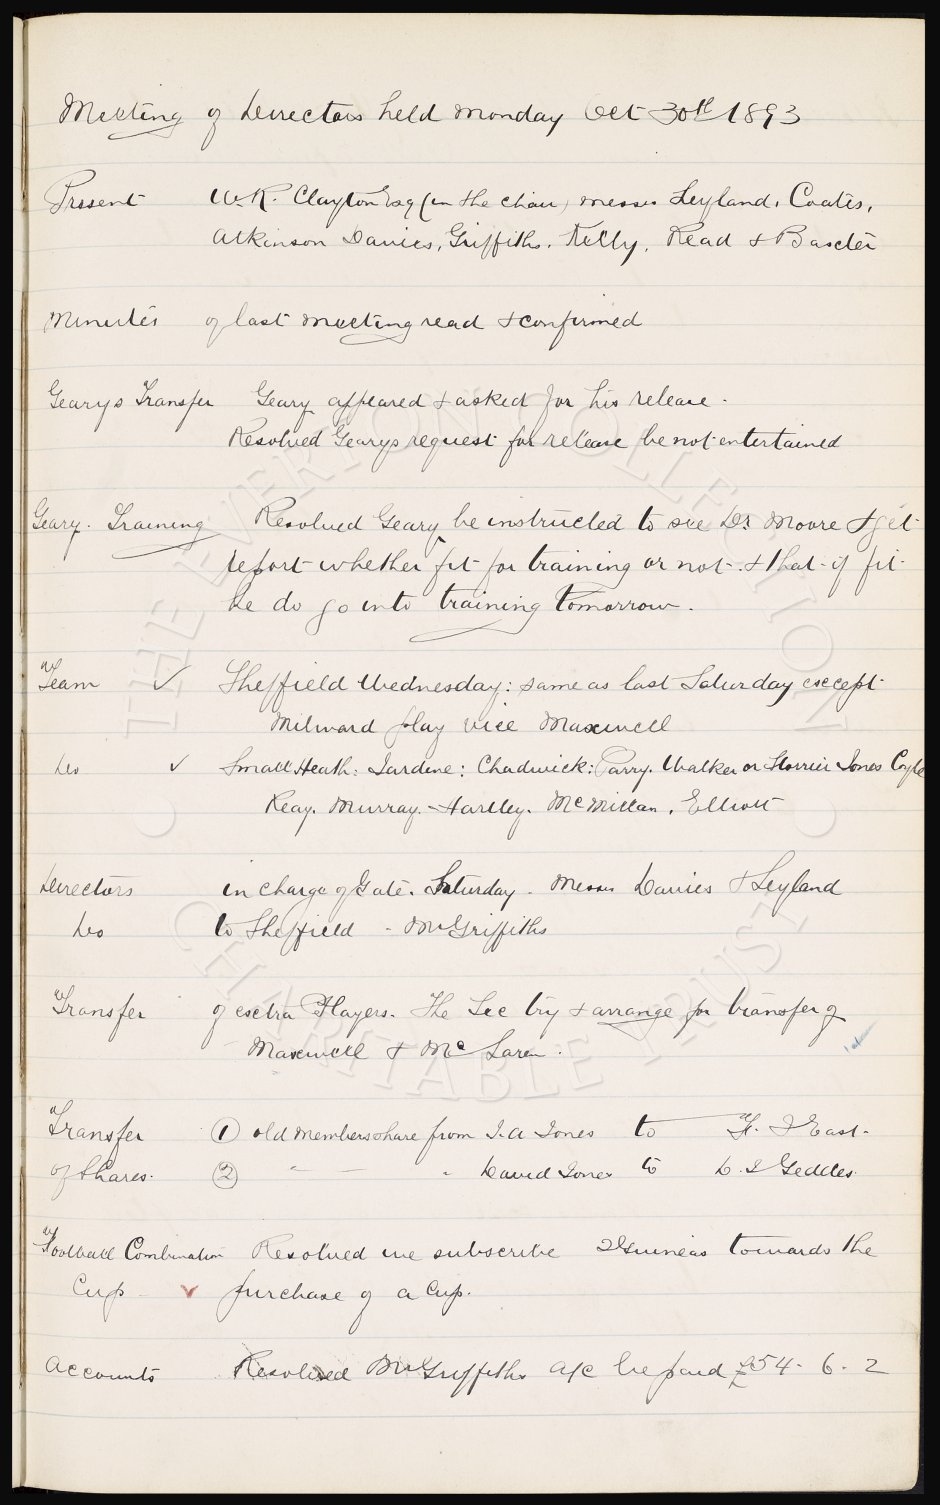 Meeting of Directors held Monday Oct 30th 1893
Present W. R. Clayton Esq (in the chair) messrs Leyland, Coates,
Atkinson Davies, Griffiths, Kelly, Read & Baxter
Minutes of last meeting read & confirmed
Gearys Transfer Geary appeared & asked for his release.
Resolved Gearys request for release be not entertained
Geary. Training Resolved Geary be instructed to see Dr Moore & get
report whether fit for training or not. & that if fit
he do go into training tomorrow.
Team ✓ Sheffield Wednesday: same as last Saturday except
Milward play vice Maxwell
Do ✓ Small Heath: Jardine: Chadwick: Parry. Walker or Storrier Jones Coyle
Reay. Murray. Hartley. McMillan, Elliott
Directors in charge of Gate. Saturday. Messrs Davies & Leyland
Do to Sheffield - Mr Griffiths
Transfer of extra Players. The Sec try & arrange for transfer of
Maxwell & McLaren.
Transfer ① old members share from J. A Jones to F. J East.
of Shares. ② " — " David Jones to D. J Geddes.
Football Combination Resolved we subscribe 2 Guineas towards the
Cup ✓ purchase of a Cup.
Accounts Resolved Mr Griffiths a/c be paid £54-6-2
THE EVERTON COLLECTION
CHARITABLE TRUST